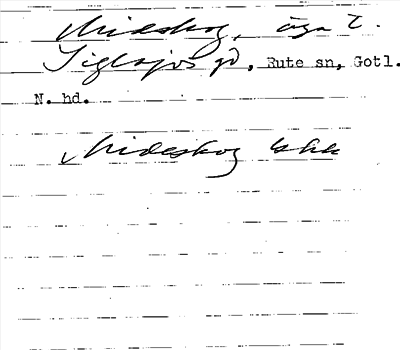 Mideskog, äga t.
Siglajvs gd, Rute sn, Gotl.
N. hd.
Mideskog